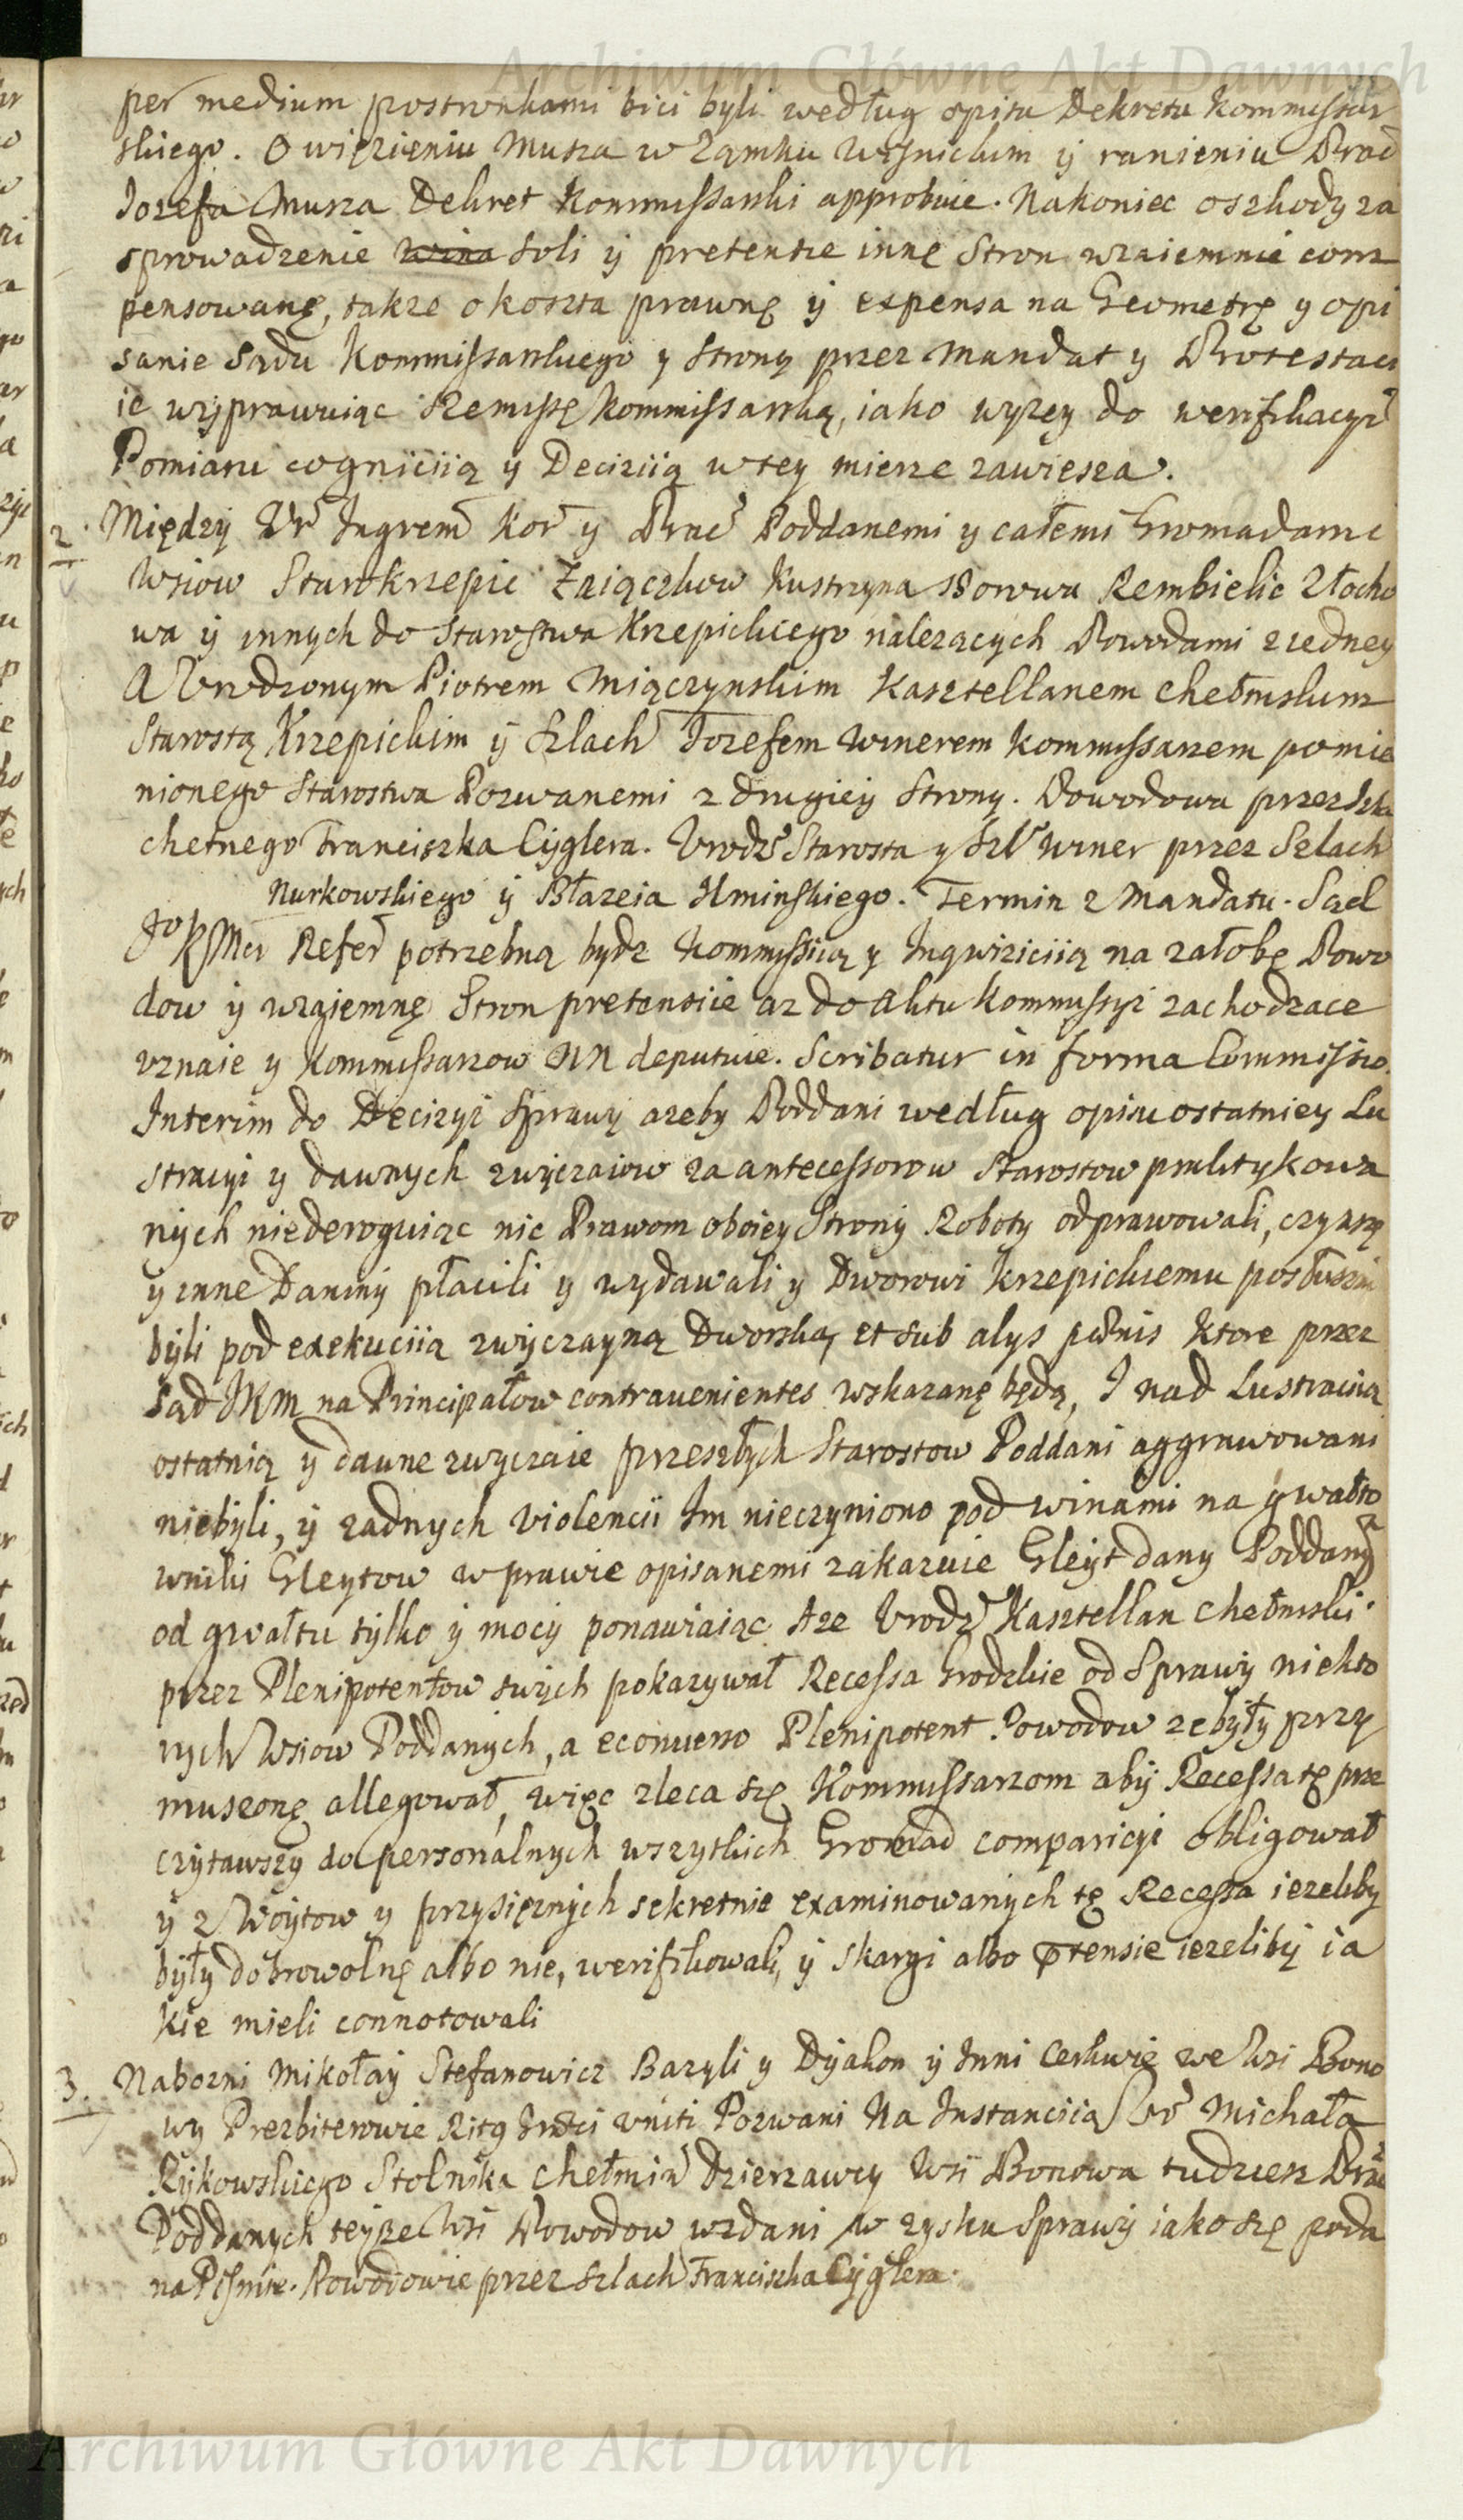 Archiwum Główne Akt Dawnych
per medium postronkami bici byli według opisu Dekretu Kommissar
skiego. O więzieniu Musza w Zamku Wisnickim ÿ ranieniu Prac
Jozefa Musza Dekret Kommissarski approbuie. Nakoniec o szkody za
sprowadzenie wina soli ÿ pretensie innę Stron wzaiemnie com
pensowanę, takze o koszta prawnę ÿ expensa na Geometrę y opi
sanie Sądu Kommissarskiego y Strony przez Mandat y Protestacy
ie wyprawuiąc Remissę Kommissarską, iako wyzey do werifikacyi
Pomiaru cogniciią ÿ Deciziią w tey mierze zawiesza.
2. Międzÿ Ur Ingrem Kor y Prac Poddanemi y całemi Gromadami
Wsiow Starokrzepic Zaiączkow Kustrzyna Borowa Rembielic Złocho
wa ÿ innych do Starostwa Krzepickiego nalezących Powodami z iedney
A Urodzonym Piotrem Miączynskim Kasztellanem Chełmskim
Starostą Krzepickim ÿ Szlach Jozefem Winerem Kommissarzem pomie
nionego Starostwa Pozwanemi z drugieÿ Strony. Powodowa przez Szla
chetnego Franciszka Cÿglera. Urodz Starosta y Szl Winer przez Szlach
Nurkowskiego ÿ Błazeia Uminskiego. Termin z Mandatu. Sąd
Jo KMci Refer potrzebną bydz Kommissiią y Inqwiziciią na załobę Powo
dow ÿ wzaiemnę Stron pretensiie az do Aktu Kommissyi zachodzace
uznaie y Kommissarzow NN deputuie. Scribatur in forma Commissio.
Interim do Decizyi Sprawy azeby Poddani według opisu ostatniey Lu
stracyi y dawnych zwÿczaiow za antecessorow Starostow praktykowa
nÿch niederoguiąc nic Prawom oboiey Stronÿ Roboty odprawowali, czynszę
ÿ inne Daninÿ płacili y wydawali y Dworowi Krzepickiemu posłuszni
bÿli pod exekuciią zwÿczayną Dworską, et sub alys pœnis ktore przez
Sąd JKM na Principałow contravenientes wskazanę będą, I nad Lustraciią
ostatnią ÿ dawne zwyczaie przeszłÿch Starostow Poddani aggrawowani
niebÿli, ÿ zadnych violencii Im nieczyniono pod winami na gwałto
wniki Gleytow w prawie opisanemi zakazuie Gleÿt dany Poddanÿ
od gwałtu tÿlko ÿ mocÿ ponawiaiąc. A ze Urodz Kasztellan Chełmski
przez Plenipotentow swÿch pokazywał Recessa Grodzkie od Sprawÿ niekto
rych Wsiow Poddanych, a econverso Plenipotent Powodow ze byłÿ przy
muszonę allegował, więc zleca się Kommissarzom abÿ Recessa tę prze
czÿtawszy do personalnych wszytkich Gromad comparicyi obligował
ÿ z Woÿtow y przysięznÿch sekretnie examinowanÿch tę Recessa iezeliby
bÿłÿ dobrowolnę albo nie, werifikowali, ÿ skargi albo ꝓtensie iezelibÿ ia
kie mieli connotowali
3. Nabozni Mikołaÿ Stefanowicz Bazyli y Dÿakon ÿ Inni Cerkwie we Wsi Bono
wy Prezbiterowie Ritg Græci uniti Pozwani Na Instanciią Ur Michała
Rÿkowskiego Stolnika Chełmin Dzierzawcy Wsi Bonowa tudziesz Prac
Poddanych teÿze Wsi Powodow wzdani w zysku Sprawÿ iako się poda
na Pismie. Powodowie przez Szlach Franciszka Cÿglera.
Archiwum Główne Akt Dawnych